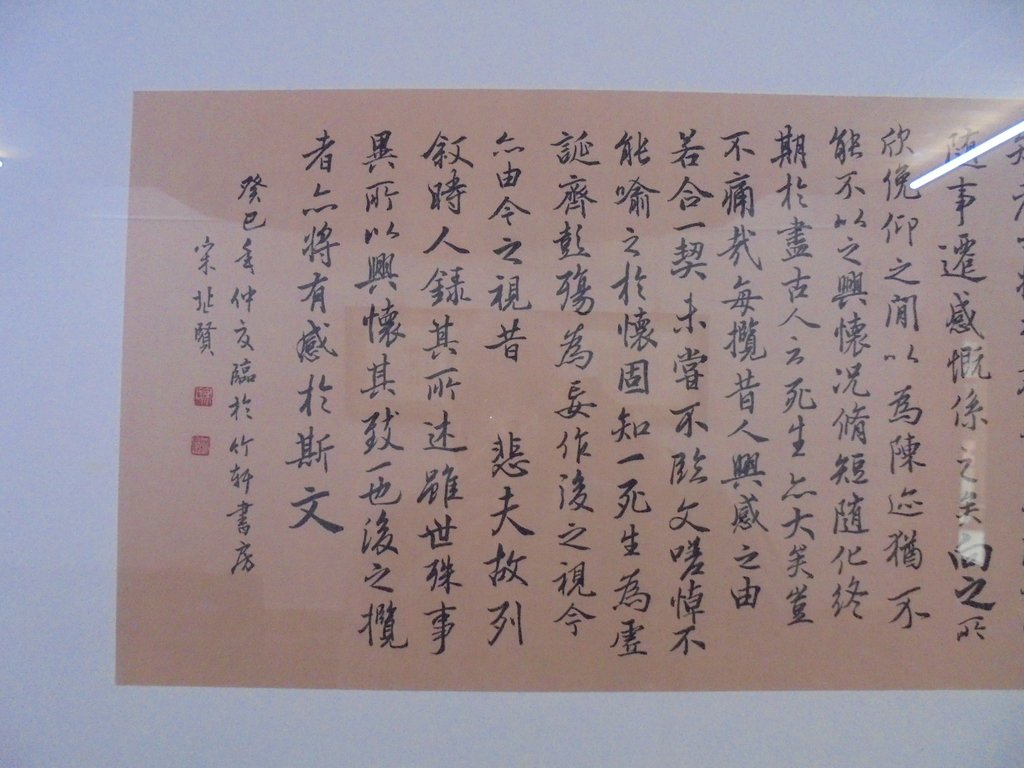 隨事遷感慨係之矣向之所
欣俛仰之閒以為陳迹猶不
能不以之興懷況脩短隨化終
期於盡古人云死生亦大矣豈
不痛哉每攬昔人興感之由
若合一契未嘗不臨文嗟悼不
能喻之於懷固知一死生為虛
誕齊彭殤為妄作後之視今
亦由今之視昔 悲夫故列
敘時人錄其所述雖世殊事
異所以興懷其致一也後之攬
者亦將有感於斯文
癸巳年仲夏臨於竹軒書房
宋 賢